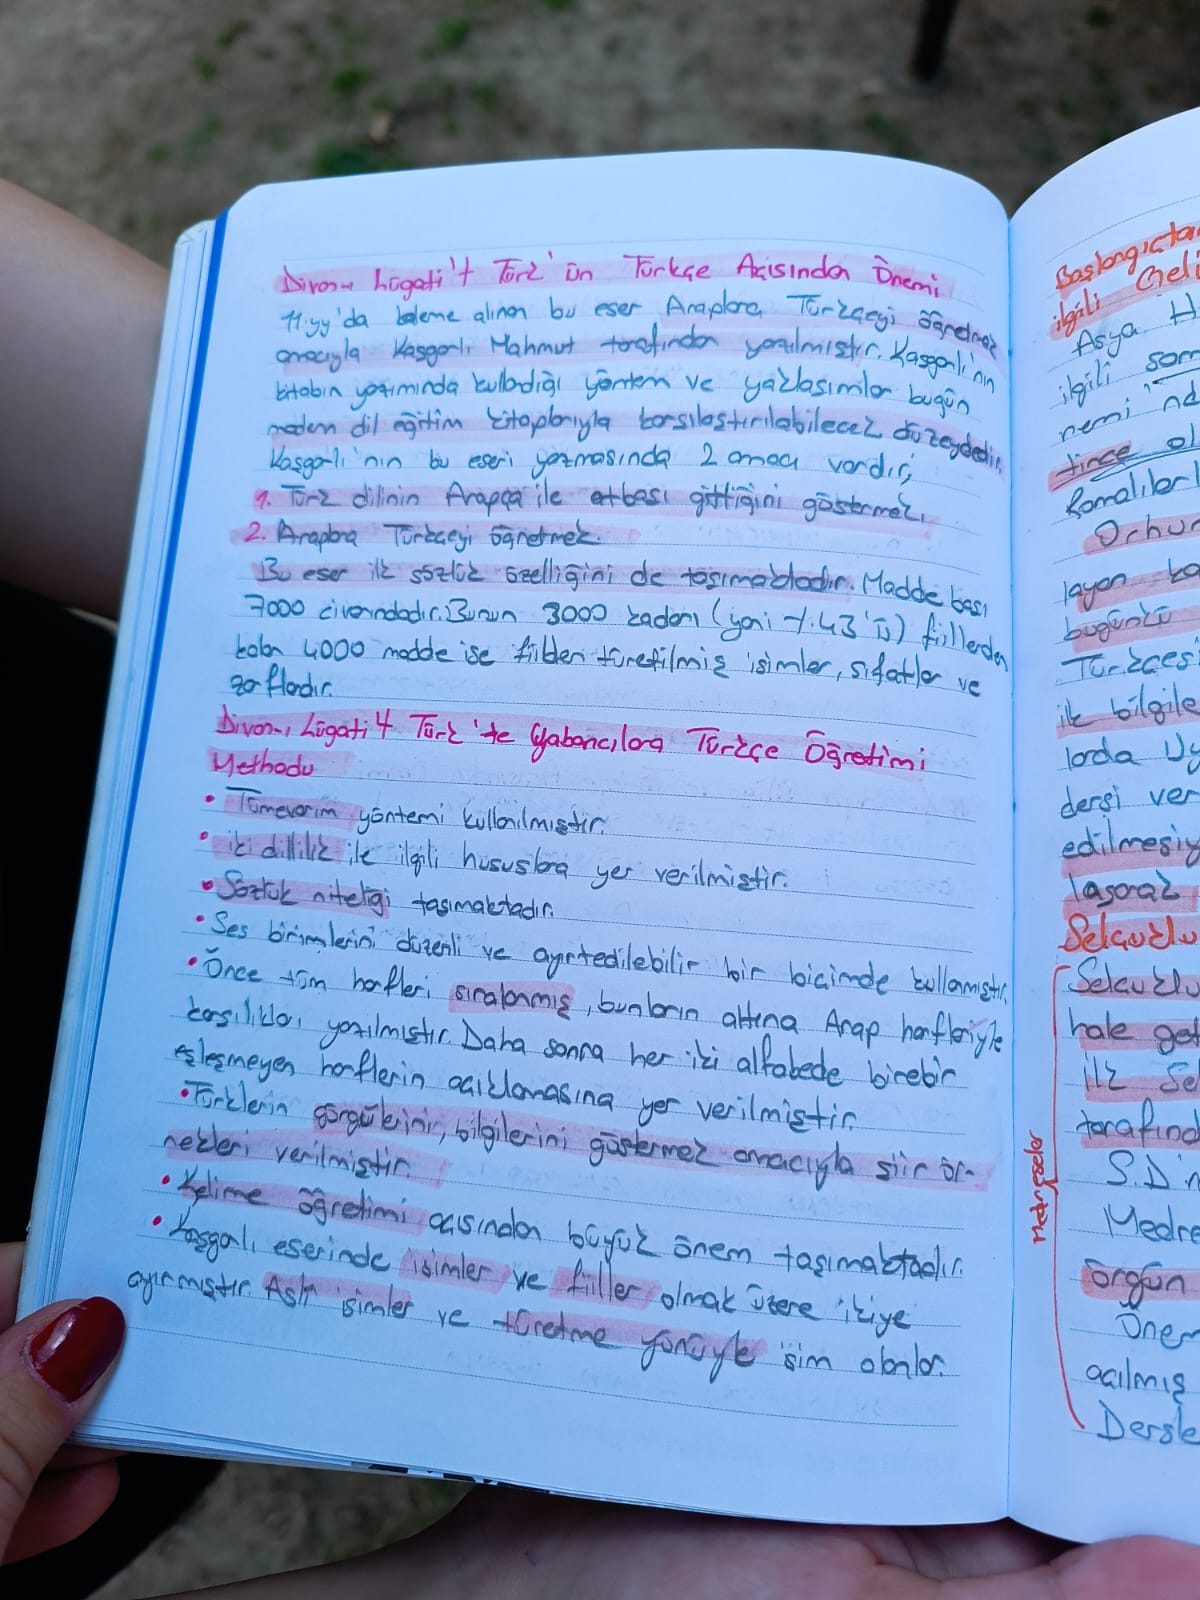 Divan-ı Lügati't Türk'ün Türkçe Açısından Önemi
11.yy'da kaleme alınan bu eser Araplara Türkçeyi öğretmek
amacıyla Kaşgarlı Mahmut tarafından yazılmıştır. Kaşgarlı'nın
kitabın yazımında kullandığı yöntem ve yaklaşımlar bugün
modern dil eğitim kitaplarıyla karşılaştırılabilecek düzeydedir.
Kaşgarlı'nın bu eseri yazmasında 2 amacı vardır;
1. Türk dilinin Arapça ile atbaşı gittiğini göstermek,
2. Araplara Türkçeyi öğretmek.
Bu eser ilk sözlük özelliğini de taşımaktadır. Madde başı
7000 civarındadır. Bunun 3000 kadarı (yani %43'ü) fiillerden
kalan 4000 madde ise fiilden türetilmiş isimler, sıfatlar ve
zarflardır.
Divan-ı Lügati't Türk'te Yabancılara Türkçe Öğretimi
Methodu
• Tümevarım yöntemi kullanılmıştır.
• İki dillilik ile ilgili hususlara yer verilmiştir.
• Sözlük niteliği taşımaktadır.
• Ses birimlerini düzenli ve ayırtedilebilir bir biçimde kullanmıştır.
• Önce tüm harfleri sıralanmış, bunların altına Arap harfleriyle
karşılıkları yazılmıştır. Daha sonra her iki alfabede birebir
eşleşmeyen harflerin açıklamasına yer verilmiştir.
• Türklerin görgülerini, bilgilerini göstermek amacıyla şiir ör-
nekleri verilmiştir.
• Kelime öğretimi açısından büyük önem taşımaktadır.
• Kaşgarlı eserinde isimler ve fiiller olmak üzere ikiye
ayırmıştır. Aslı isimler ve türetme yönüyle isim olanlar.
Başlangıçta
ilgili Geli
Asya H
ilgili som
nemi'nd
tince ol
Kamalıları
Orhun
layan ka
bugünkü
Türkçesi
ilk bilgile
larda Uy
dersi ver
edilmesiy
laşarak
Selçuklu
Selçuklu
hale get
İlk Sel
tarafında
S.D'n
Medre
örgün
Önem
açılmış
Dersle
Medreseler